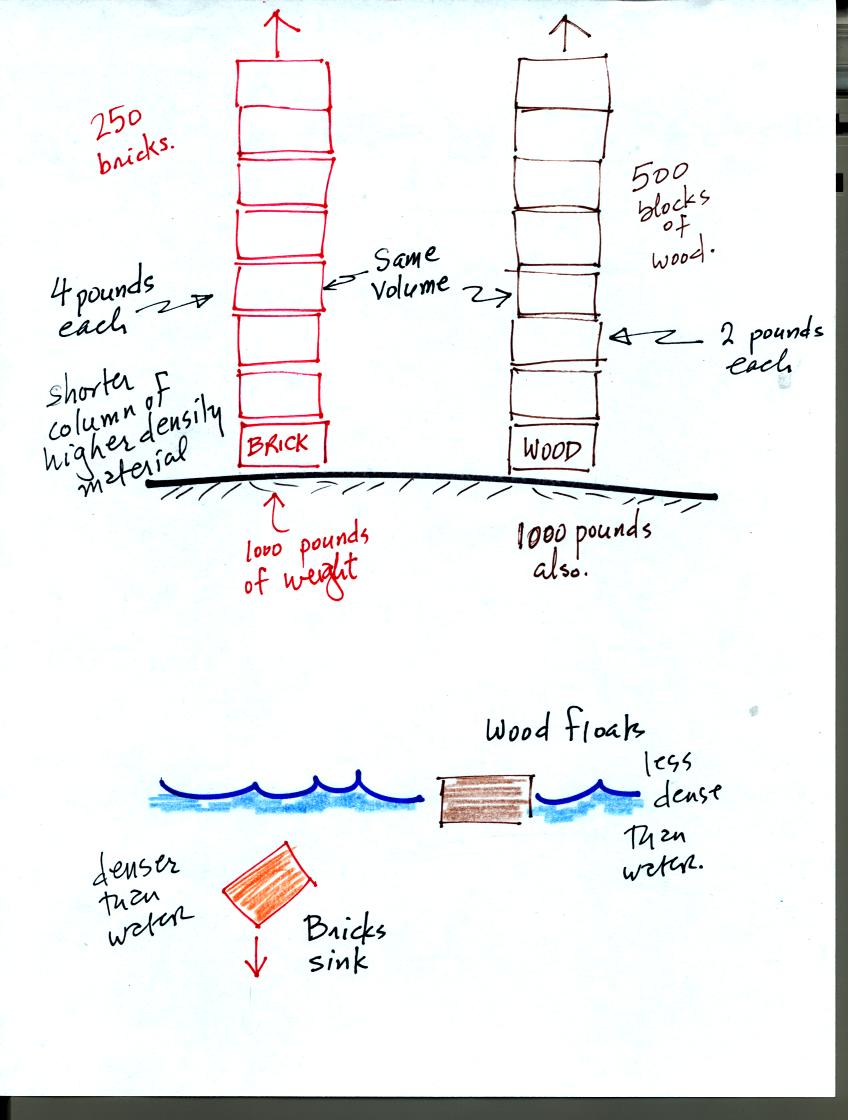 250
bricks.
500
blocks
of
wood.
Same
Volume
4 pounds
each
2 pounds
each
shorter
column of
higher density
material
BRICK
WOOD
1000 pounds
of weight
1000 pounds
also.
Wood floats
less
dense
than
water.
denser
than
water
Bricks
sink